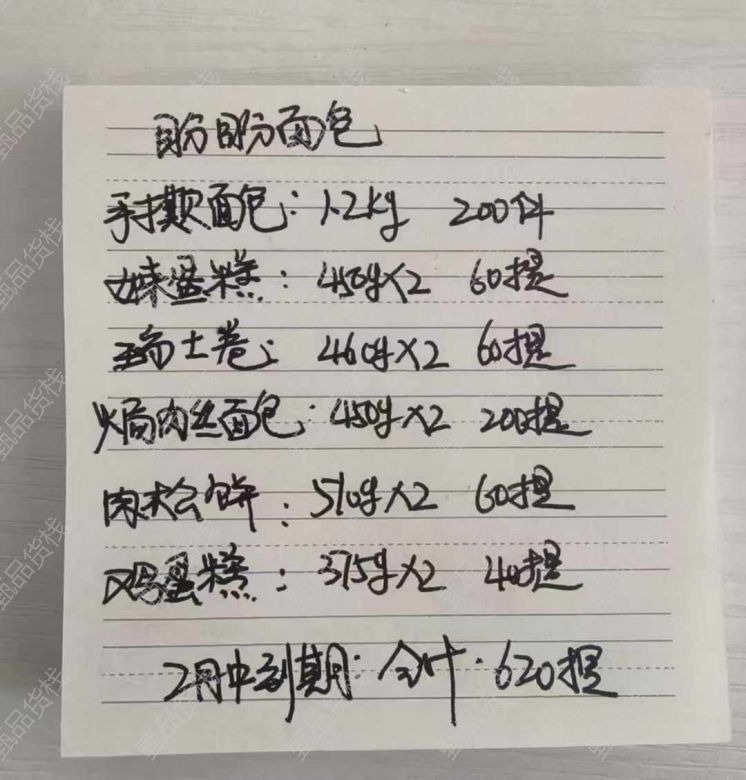 盼盼面包
手撕面包：1.2kg 200件
蛋糕：450g×2 60提
瑞士卷：460g×2 60提
焗肉丝面包：450g×2 200提
肉松饼：510g×2 60提
鸡蛋糕：375g×2 40提
2月中到期·合计·620提
甄品货栈